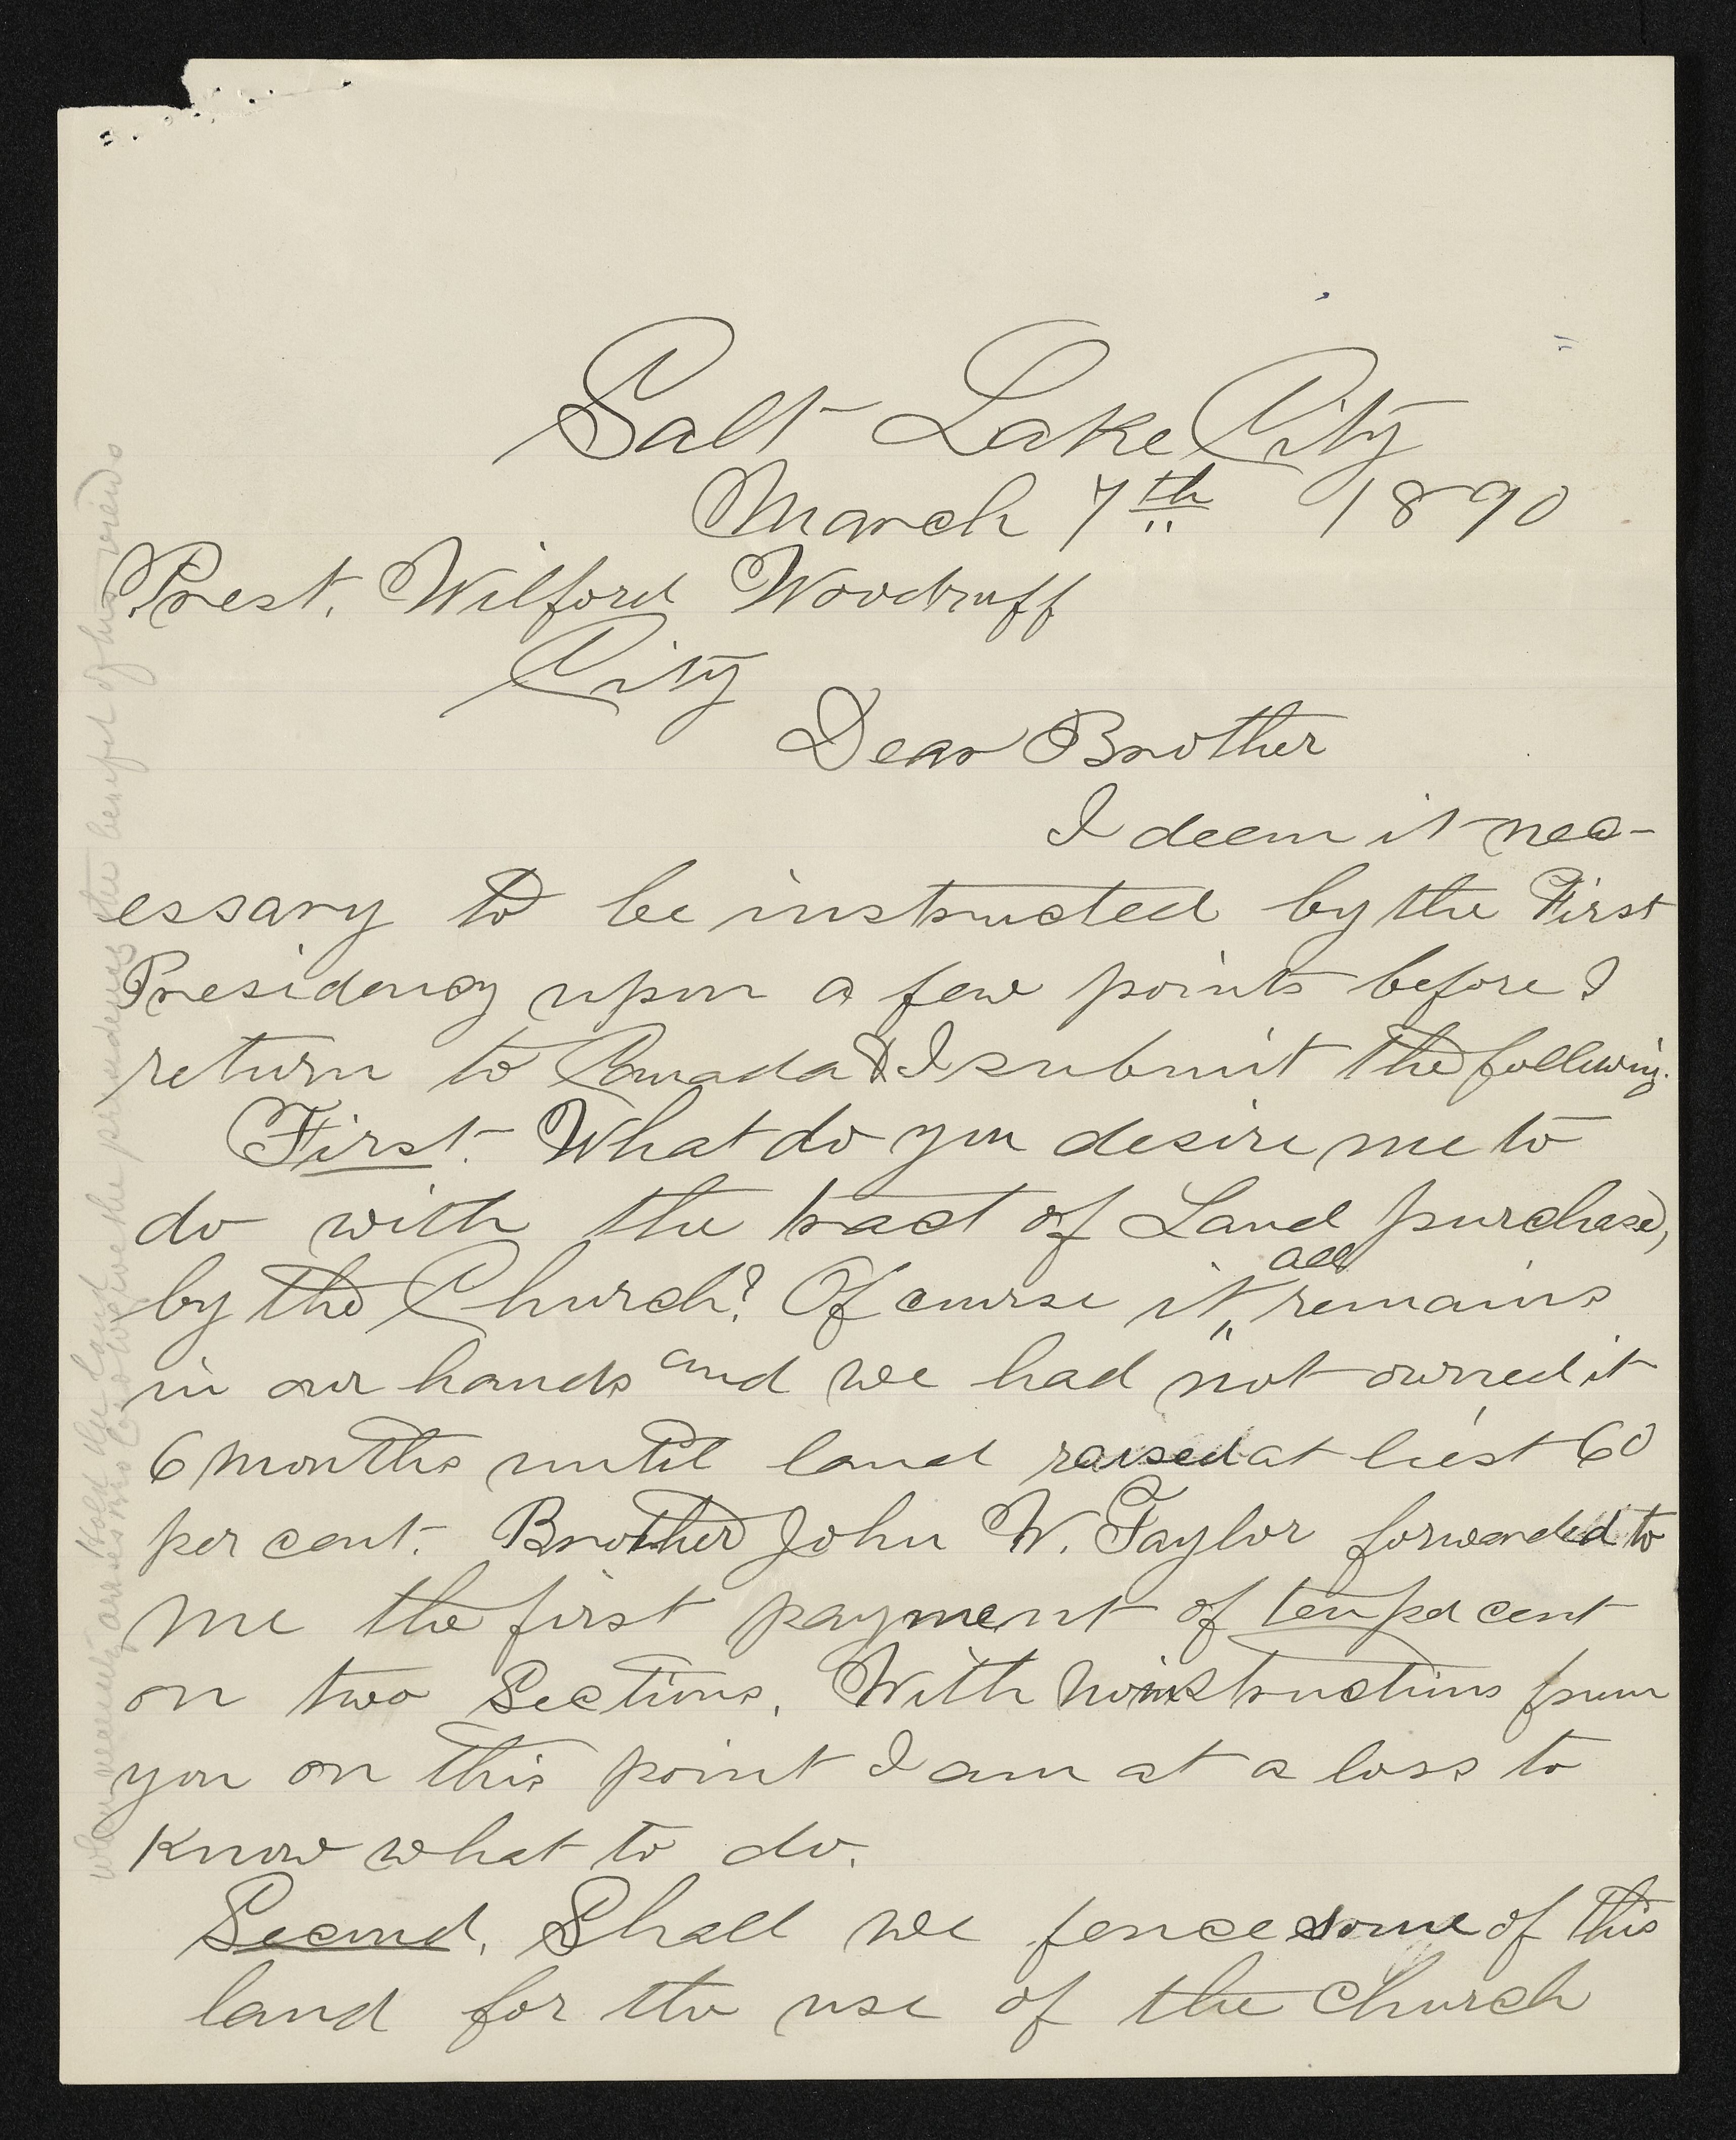 Salt Lake City
March 7th 1890
Prest. Wilford Woodruff
City
Dear Brother
I deem it nec-
essary to be instructed by the First
Presidency upon a few points before I
return to Canada & I submit the following.
First. What do you desire me to
do with the tract of Land purchased,
by the Church? Of course it all remains
in our hands and we had not owned it
6 months until land raised at liest 60
per cent. Brother John W. Taylor forwarded to
me the first payment of ten per cent
on two Sections. With no instructions from
you on this point I am at a loss to
know what to do.
Second. Shall we fence some of this
land for the use of the Church
Hold the land